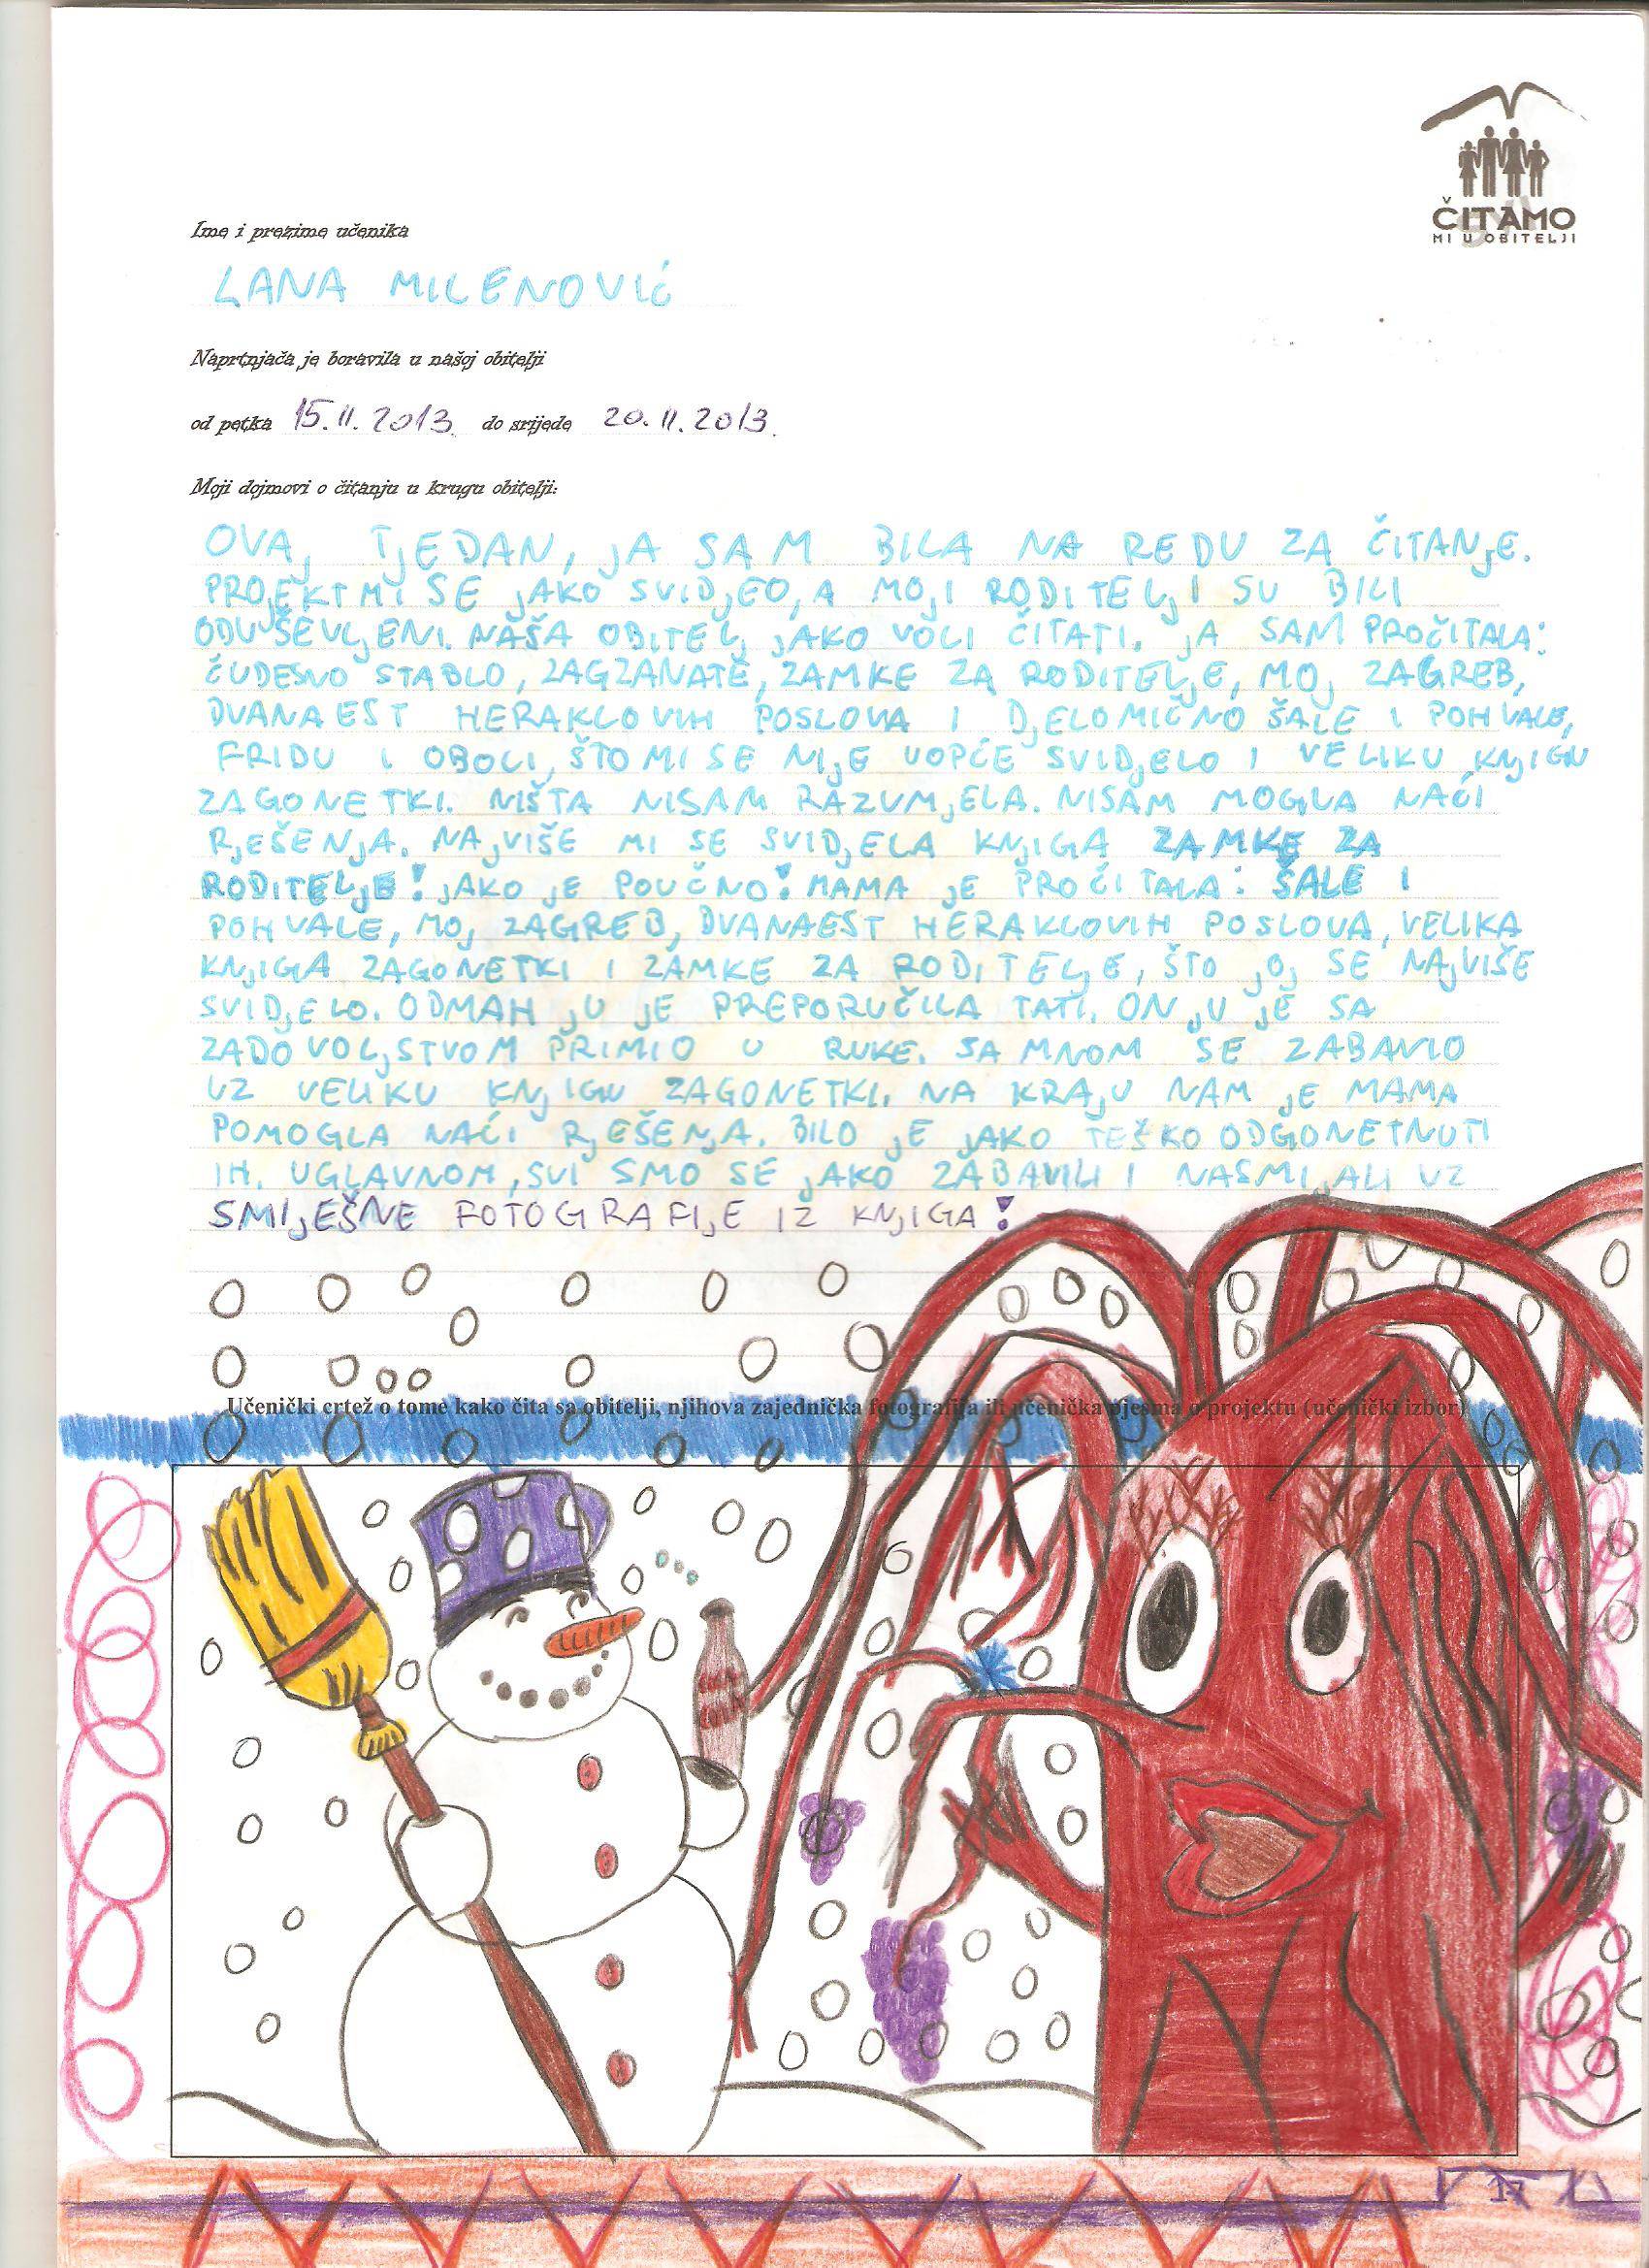 ČITAMO
MI U OBITELJI
Ime i prezime učenika
LANA MILENOVIĆ
Naprtnjača je boravila u našoj obitelji
od petka 15.11.2013. do srijede 20.11.2013.
Moji dojmovi o čitanju u krugu obitelji:
OVAJ TJEDAN, JA SAM BILA NA REDU ZA ČITANJE.
PROJEKT MI SE JAKO SVIDJEO, A MOJI RODITELJI SU BILI
ODUŠEVLJENI. NAŠA OBITELJ JAKO VOLI ČITATI. JA SAM PROČITALA:
ČUDESNO STABLO, ZAGZANATE, ZAMKE ZA RODITELJE, MOJ ZAGREB,
DVANAEST HERAKLOVIH POSLOVA I DJELOMIČNO ŠALE I POHVALE,
FRIDU I OBOLI, ŠTO MI SE NIJE UOPĆE SVIDJELO I VELIKU KNJIGU
ZAGONETKI. NIŠTA NISAM RAZUMJELA. NISAM MOGLA NAĆI
RJEŠENJA. NAJVIŠE MI SE SVIDJELA KNJIGA ZAMKE ZA
RODITELJE! JAKO JE POUČNO! MAMA JE PROČITALA: ŠALE I
POHVALE, MOJ ZAGREB, DVANAEST HERAKLOVIH POSLOVA, VELIKA
KNJIGA ZAGONETKI I ZAMKE ZA RODITELJE, ŠTO JOJ SE NAJVIŠE
SVIDJELO. ODMAH JU JE PREPORUČILA TATI. ON JU JE SA
ZADOVOLJSTVOM PRIMIO U RUKE. SA MNOM SE ZABAVIO
UZ VELIKU KNJIGU ZAGONETKI. NA KRAJU NAM JE MAMA
POMOGLA NAĆI RJEŠENJA. BILO JE JAKO TEŠKO ODGONETNUTI
IH. UGLAVNOM, SVI SMO SE JAKO ZABAVILI I NASMIJALI UZ
SMIJEŠNE FOTOGRAFIJE IZ KNJIGA!
Učenički crtež o tome kako čita sa obitelji, njihova zajednička fotografija ili učenička pjesma o projektu (učenički izbor)
17